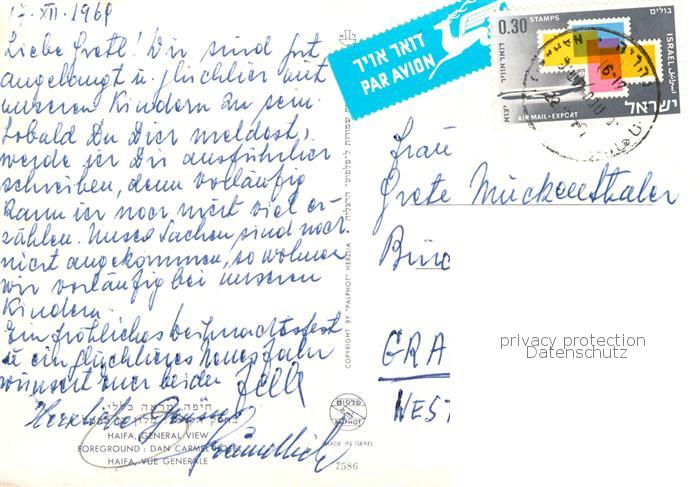 17-XII-1969
Liebe Gretl! Wir sind gut
angelangt u. glücklich mit
unseren Kindern zu sein.
Sobald Du Dich meldest,
werde ich Dir ausführlicher
schreiben, denn vorläufig
kann ich noch nicht viel er-
zählen. Unsere Sachen sind noch
nicht angekommen, so wohnen
wir vorläufig bei unseren
Kindern.
Ein fröhliches Weihnachtsfest
u ein glückliches neues Jahr
wünscht Euer beider
Herzliche Grüsse
חיפה, מראה כללי
HAIFA, GENERAL VIEW
FOREGROUND: DAN CARMEL HOTEL
HAIFA, VUE GENERALE
COPYRIGHT BY "PALPHOT" HERZLIA
פלפוט
PALPHOT
MADE IN ISRAEL
7586
דואר אויר
PAR AVION
0.30
STAMPS
בולים
ISRAEL
ישראל
AIR MAIL · EXPORT
Frau
Grete Muckenthaler
GRA
WEST
privacy protection
Datenschutz